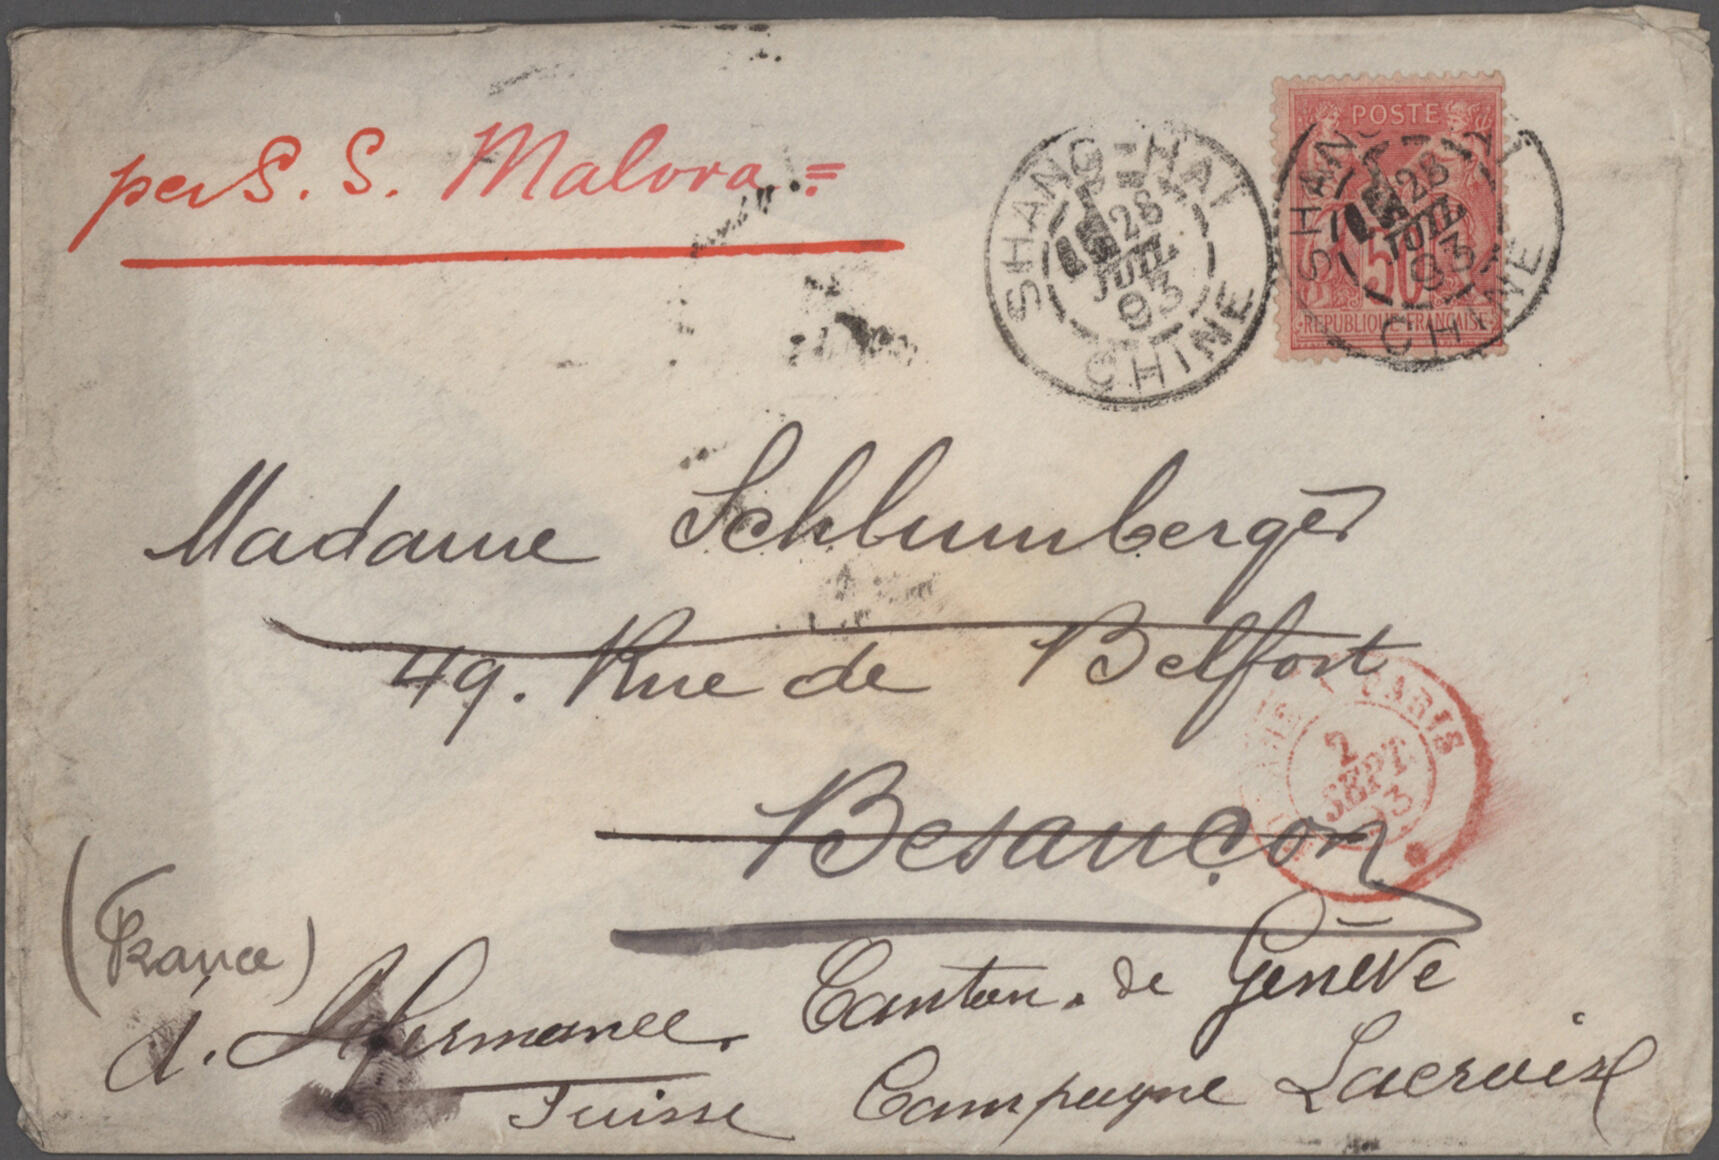 per S. S. Malwa =
POSTE
50
REPUBLIQUE FRANCAISE
SHANG-HAI
28
JUIL
93
CHINE
SHANG-HAI
28
JUIL
93
CHINE
Madame Schlumberger
49. Rue de Belfort
Besançon
(France)
PARIS
2
SEPT.
93
à. Hermance. Canton. de Genève
Suisse Campagne Lacroix